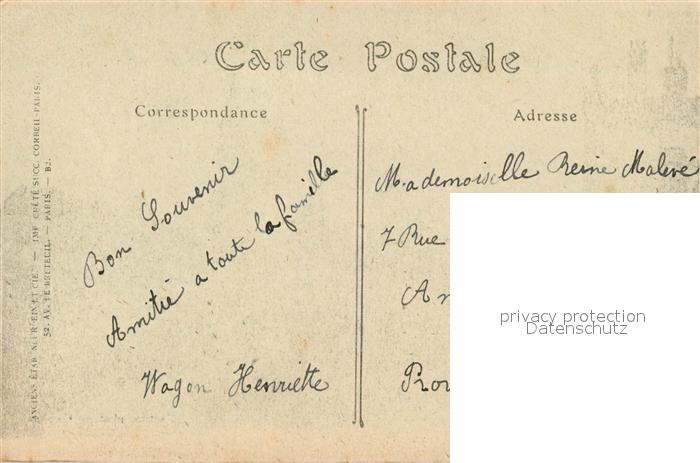 Carte Postale
Correspondance
Adresse
Bon Souvenir
Amitié a toute la famille
Wagon Henriette
Mademoiselle Reine Malevé
7 Rue
privacy protection
Datenschutz
ANCIENS ÉTAB. NEURDEIN ET CIE. — IMP. CRÉTÉ SUCC. CORBEIL-PARIS.
52, AV. DE BRETEUIL. — PARIS. — B2.